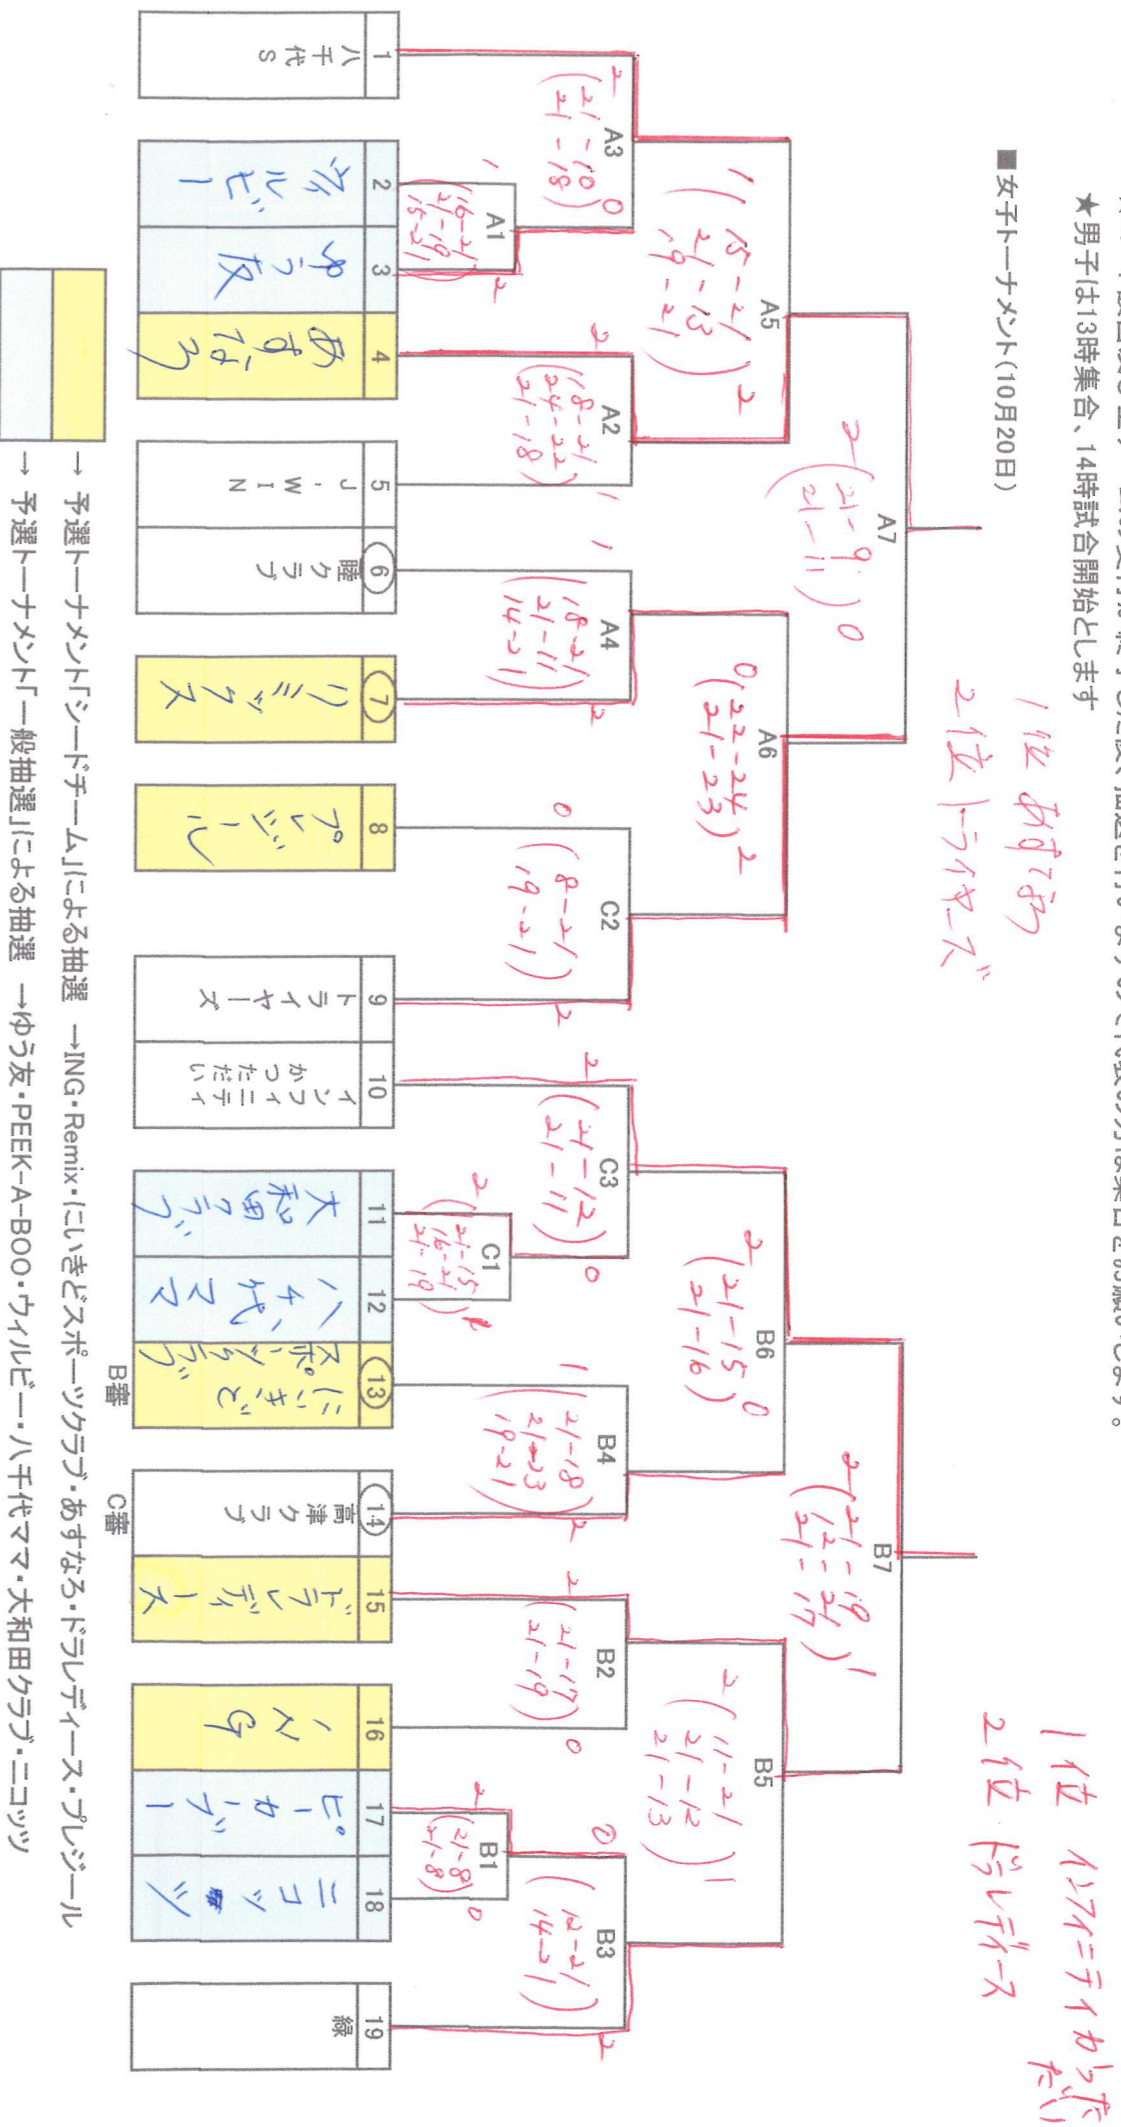 ★男子は13時集合、14時試合開始とします
■女子トーナメント(10月20日)
1位 あすなろ
2位 トライヤーズ
1位 インフィニティかつただい
2位 ドラレディース
A7
2 (21-9 21-11) 0
B7
2 (21-19 12-21 21-17) 1
A5
1 (15-21 21-13 19-21) 2
A6
0 (22-24 21-23) 2
B6
2 (21-15 21-16) 0
B5
2 (11-21 21-12 21-13) 1
A3
2 (21-10 21-18) 0
A2
2 (18-21 24-22 21-18) 1
A4
1 (18-21 21-11 14-21) 2
C2
0 (8-21 19-21) 2
C3
2 (21-12 21-11) 0
B4
1 (21-18 21-23 19-21) 2
B2
2 (21-17 21-19) 0
B3
0 (12-21 14-21) 2
A1
1 (16-21 21-19 15-21) 2
C1
2 (21-15 16-21 21-19) 1
B1
2 (21-8 21-8) 0
1 八千代S
2 ウィルビー
3 ゆう友
4 あすなろ
5 J・WIN
⑥ 睦クラブ
⑦ リミックス
8 プレジール
9 トライヤーズ
10 インフィニティかつただい
11 大和田クラブ
12 八千代ママ
⑬ にいきどスポーツクラブ
⑭ 高津クラブ
15 ドラレディース
16 ING
17 ピーカーブー
18 ニコッツ
19 緑
B審
C審
→ 予選トーナメント「シードチーム」による抽選 →ING・Remix・にいきどスポーツクラブ・あすなろ・ドラレディース・プレジール
→ 予選トーナメント「一般抽選」による抽選 →ゆう友・PEEK-A-BOO・ウィルビー・八千代ママ・大和田クラブ・ニコッツ